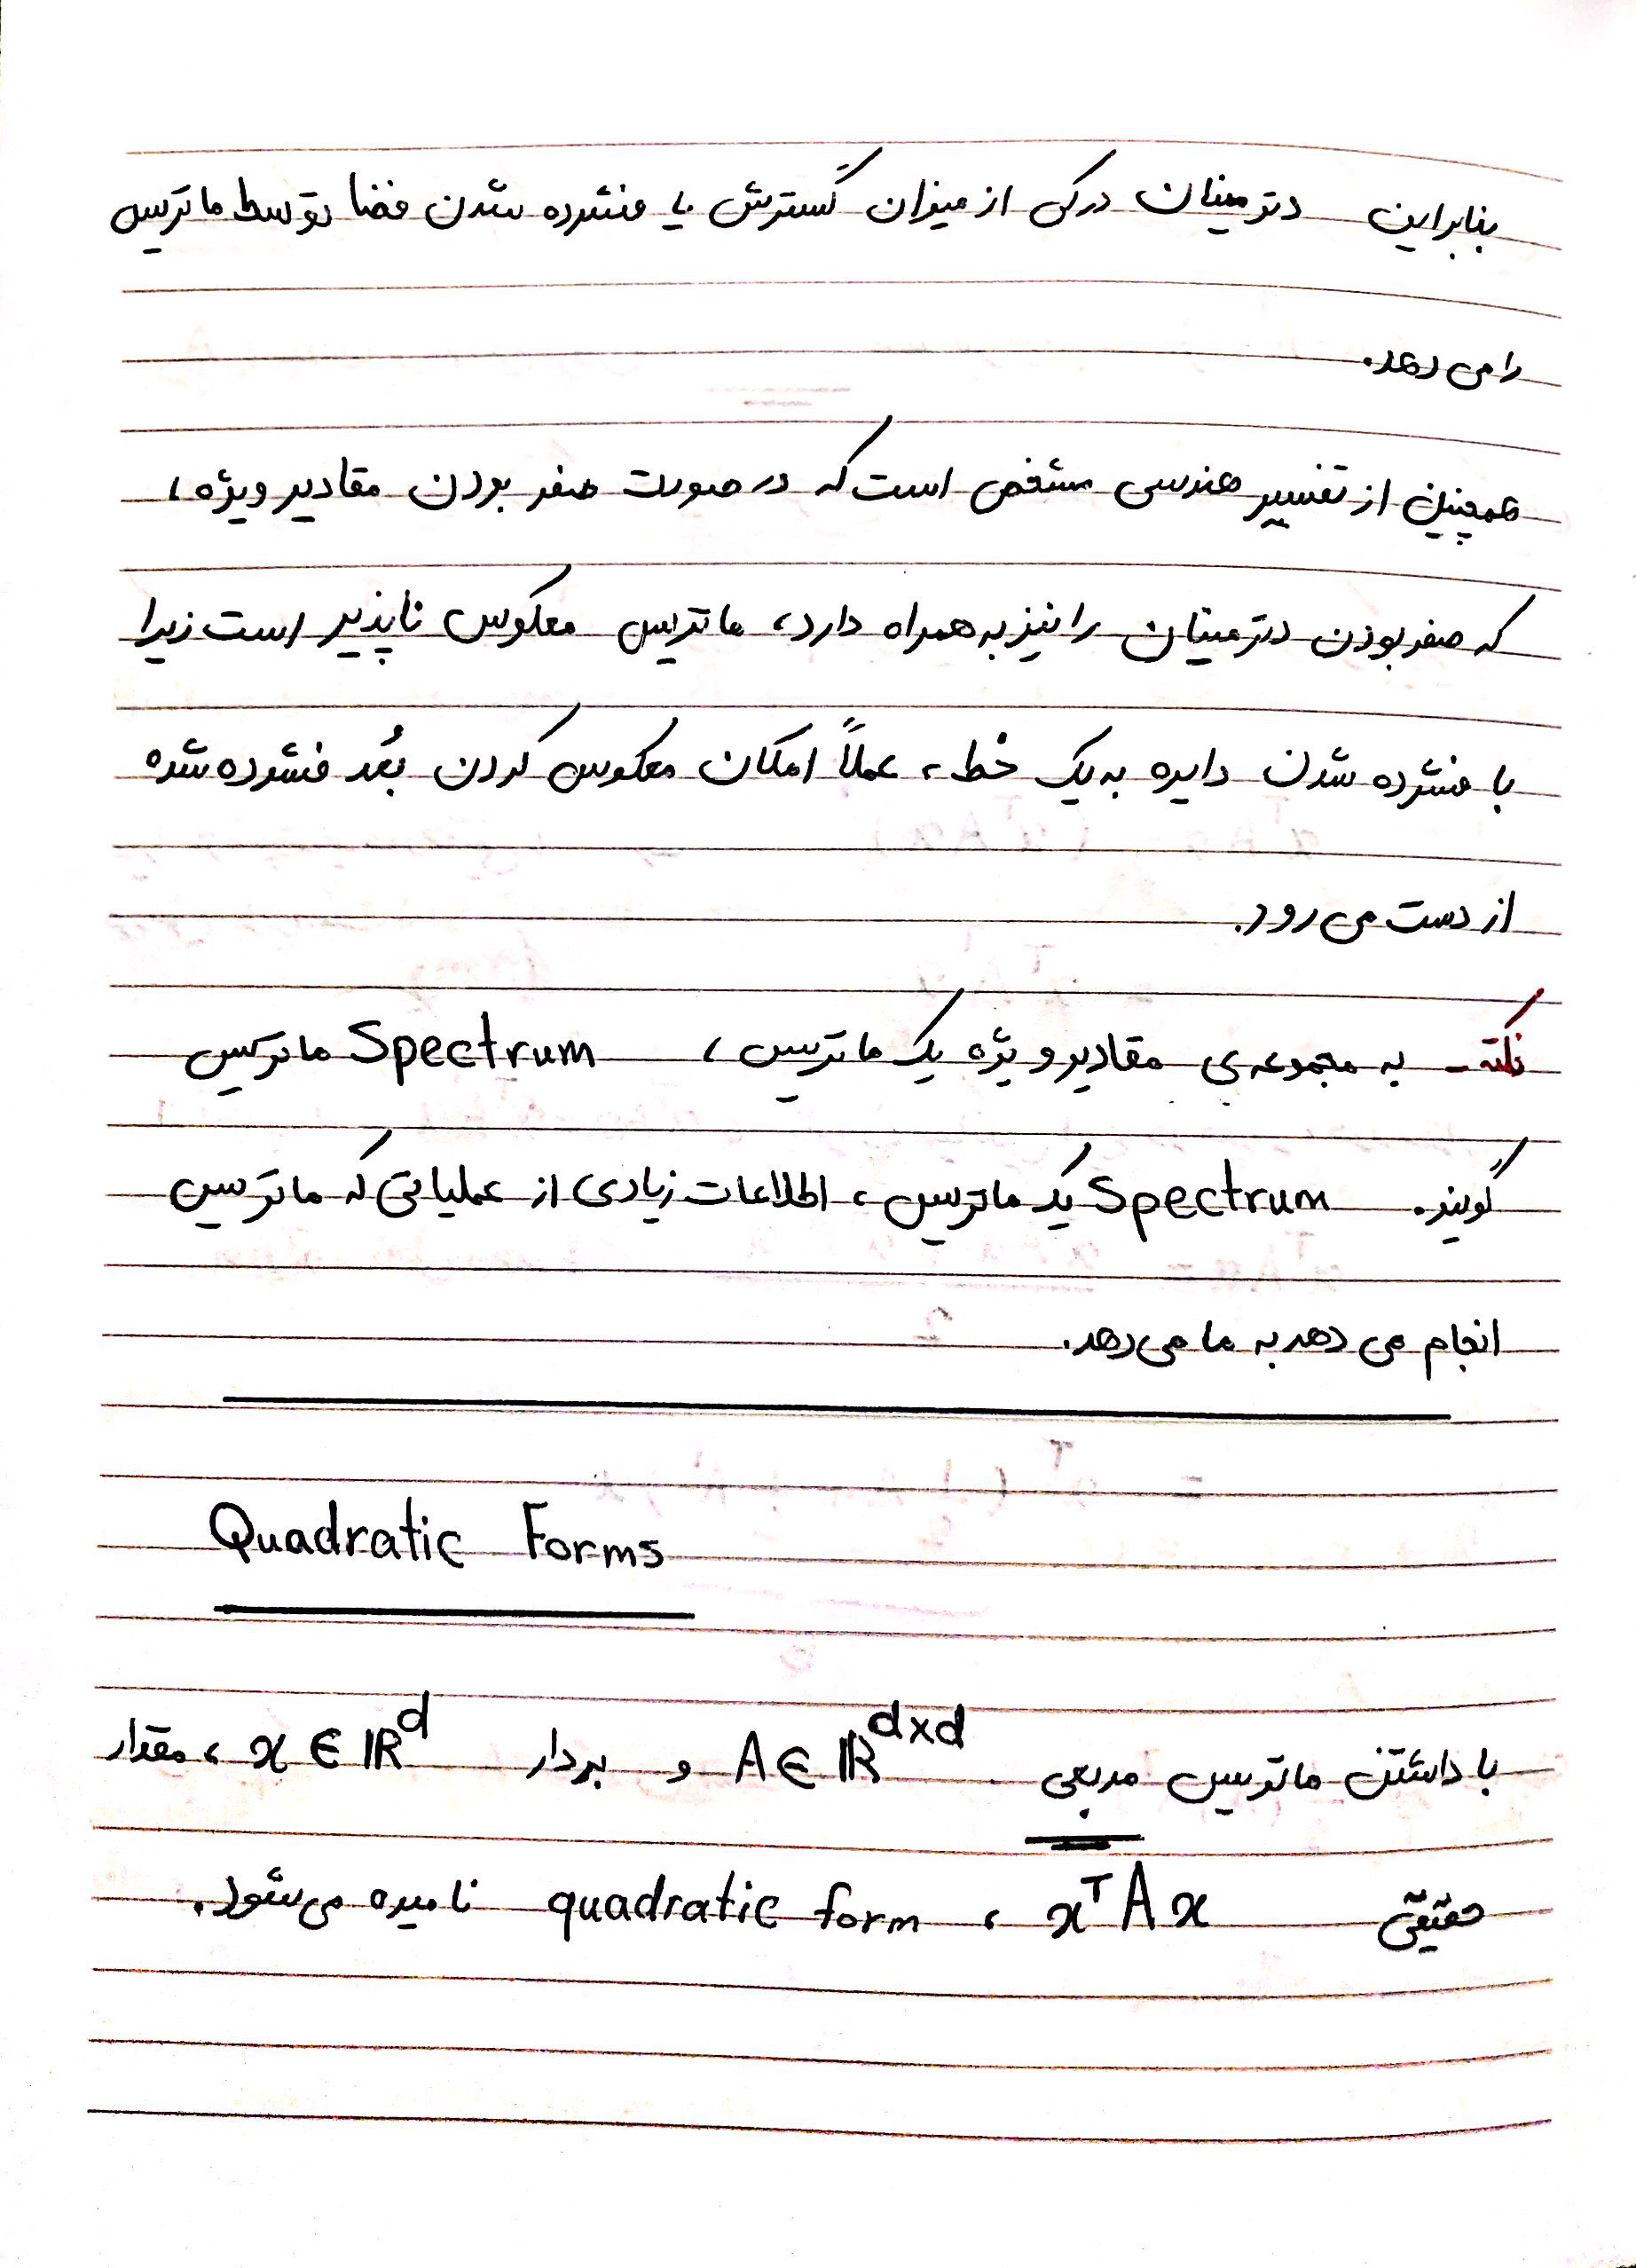 بنابراین دترمینان درکی از میزان گسترش یا فشرده شدن فضا توسط ماتریس
را می دهد.
همچنین از تفسیر هندسی مشخص است که در صورت صفر بودن مقادیر ویژه،
که صفر بودن دترمینان را نیز به همراه دارد، ماتریس معکوس ناپذیر است زیرا
با فشرده شدن دایره به یک خط، عملاً امکان معکوس کردن بُعد فشرده شده
از دست می رود.
نکته - به مجموعه ی مقادیر ویژه یک ماتریس، Spectrum ماتریس
گویند. Spectrum یک ماتریس، اطلاعات زیادی از عملیاتی که ماتریس
انجام می دهد به ما می دهد.
Quadratic Forms
با داشتن ماتریس مربعی A ∈ ℝ^{d×d} و بردار x ∈ ℝ^d، مقدار
حقیقی x^T A x، quadratic form نامیده می شود.